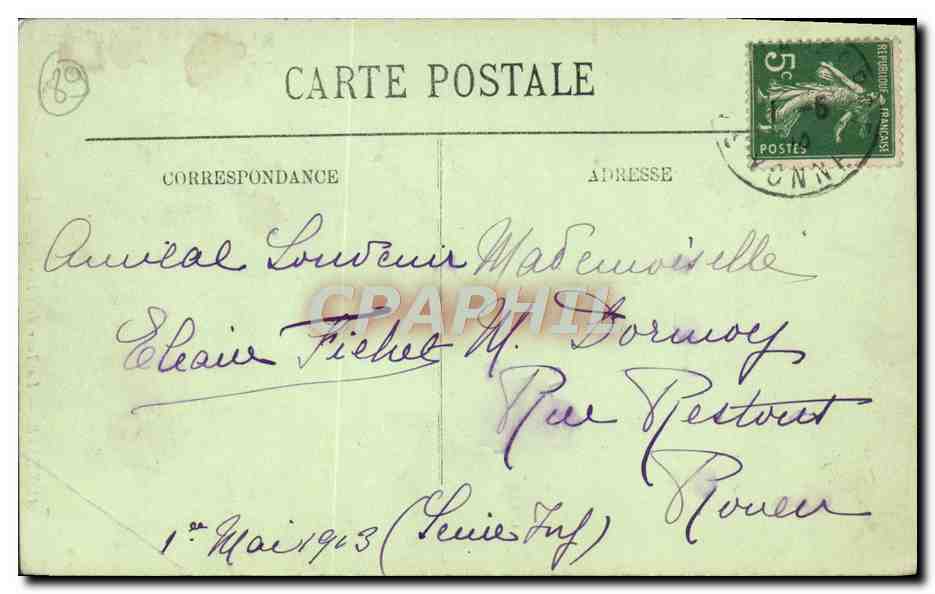 89
CARTE POSTALE
5c
REPUBLIQUE FRANÇAISE
POSTES
1 - 5
CORRESPONDANCE
ADRESSE
Amical Souvenir
Fichet
1er Mai 1913
Mademoiselle
M. Dormoy
Rue Restout
Rouen
(Seine Inf)
CPAPHIL